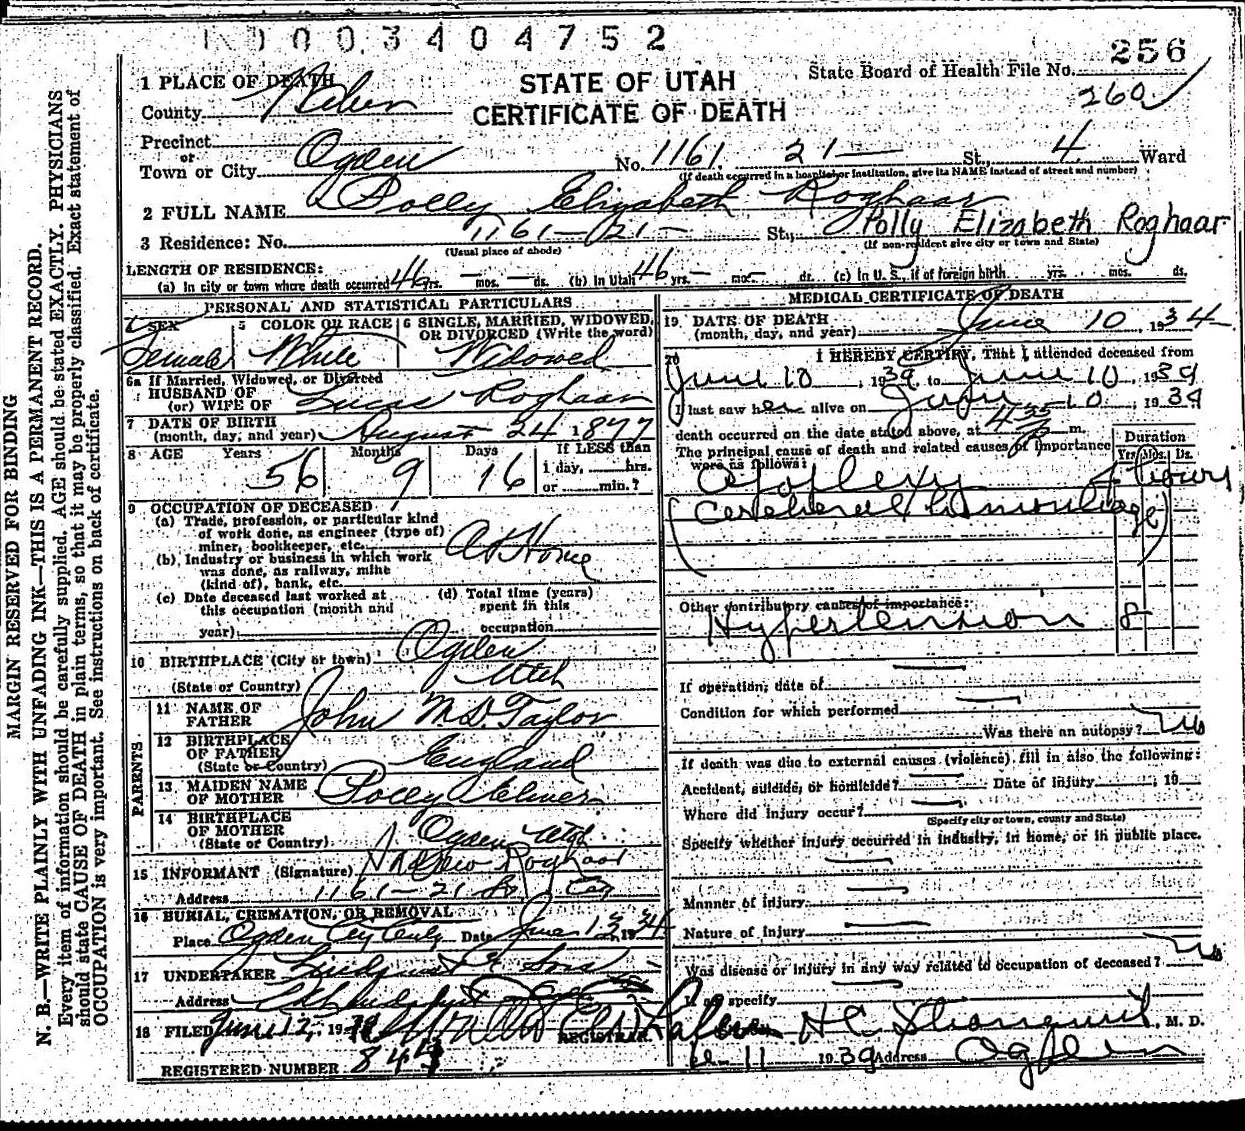 N0003404752
256
STATE OF UTAH
CERTIFICATE OF DEATH
State Board of Health File No.
260
1 PLACE OF DEATH
County Weber
Precinct
or
Town or City Ogden No. 1161 21 — St., 4 Ward
(If death occurred in a hospital or institution, give its NAME instead of street and number)
2 FULL NAME Polly Elizabeth Roghaar
Polly Elizabeth Roghaar
3 Residence: No. 1161 — 21 — St.,
(Usual place of abode) (If non-resident give city or town and State)
LENGTH OF RESIDENCE:
(a) In city or town where death occurred 46 yrs. — mos. — ds. (b) In Utah 46 yrs. — mos. — ds. (c) In U. S., if of foreign birth yrs. mos. ds.
PERSONAL AND STATISTICAL PARTICULARS
4 SEX 5 COLOR OR RACE 6 SINGLE, MARRIED, WIDOWED, OR DIVORCED (Write the word)
Female White Widowed
6a If Married, Widowed, or Divorced
HUSBAND OF
(or) WIFE OF Lucas Roghaar
7 DATE OF BIRTH
(month, day, and year) August 24 1877
8 AGE Years Months Days If LESS than
56 9 16 1 day, hrs.
or min.?
9 OCCUPATION OF DECEASED
(a) Trade, profession, or particular kind
of work done, as engineer (type of)
miner, bookkeeper, etc. At Home
(b) Industry or business in which work
was done, as railway, mine
(kind of), bank, etc.
(c) Date deceased last worked at (d) Total time (years)
this occupation (month and spent in this
year) occupation
10 BIRTHPLACE (City or town) Ogden
(State or Country) Utah
PARENTS
11 NAME OF
FATHER John M.D. Taylor
12 BIRTHPLACE
OF FATHER
(State or Country) England
13 MAIDEN NAME
OF MOTHER Polly
14 BIRTHPLACE
OF MOTHER
(State or Country) Ogden Utah
15 INFORMANT (Signature) Roghaar
Address 1161 — 21 St City
16 BURIAL, CREMATION, OR REMOVAL
Place Ogden City Date June 13, 1934
17 UNDERTAKER Lindquist & Sons
Address
18 FILED June 12, 19 REGISTRAR
REGISTERED NUMBER 844
MEDICAL CERTIFICATE OF DEATH
19 DATE OF DEATH
(month, day, and year) June 10, 1934
20 I HEREBY CERTIFY, That I attended deceased from
June 10, 1934, to June 10, 1934
I last saw her alive on June 10, 1934
death occurred on the date stated above, at 4 35 P m.
The principal cause of death and related causes of importance
were as follows:
Duration
Yrs. Mos. Ds.
Apoplexy hours
(Cerebral hemorrhage)
Other contributory causes of importance:
Hypertension 8
If operation, date of —
Condition for which performed —
Was there an autopsy? No
If death was due to external causes (violence) fill in also the following:
Accident, suicide, or homicide? — Date of injury , 19
Where did injury occur? —
(Specify city or town, county and State)
Specify whether injury occurred in industry, in home, or in public place.
—
Manner of injury —
Nature of injury —
Was disease or injury in any way related to occupation of deceased? No
If so specify —
H C Stranquist, M. D.
11 1934 Address Ogden
MARGIN RESERVED FOR BINDING
N. B.—WRITE PLAINLY WITH UNFADING INK—THIS IS A PERMANENT RECORD.
Every item of information should be carefully supplied. AGE should be stated EXACTLY. PHYSICIANS
should state CAUSE OF DEATH in plain terms, so that it may be properly classified. Exact statement of
OCCUPATION is very important. See instructions on back of certificate.